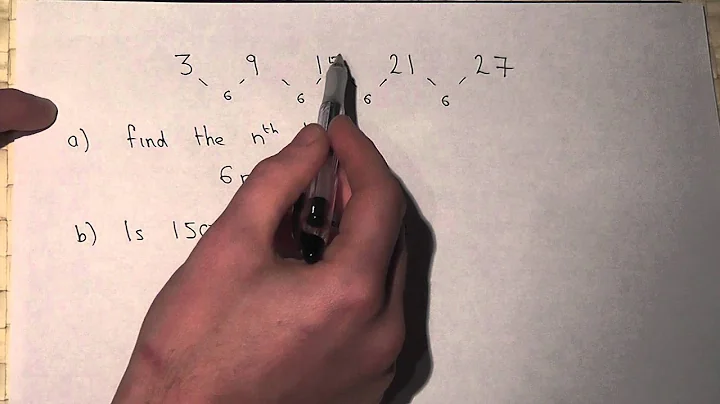 3 9 15 21 27
6 6 6 6
a) find the nth
6n
b) Is 150